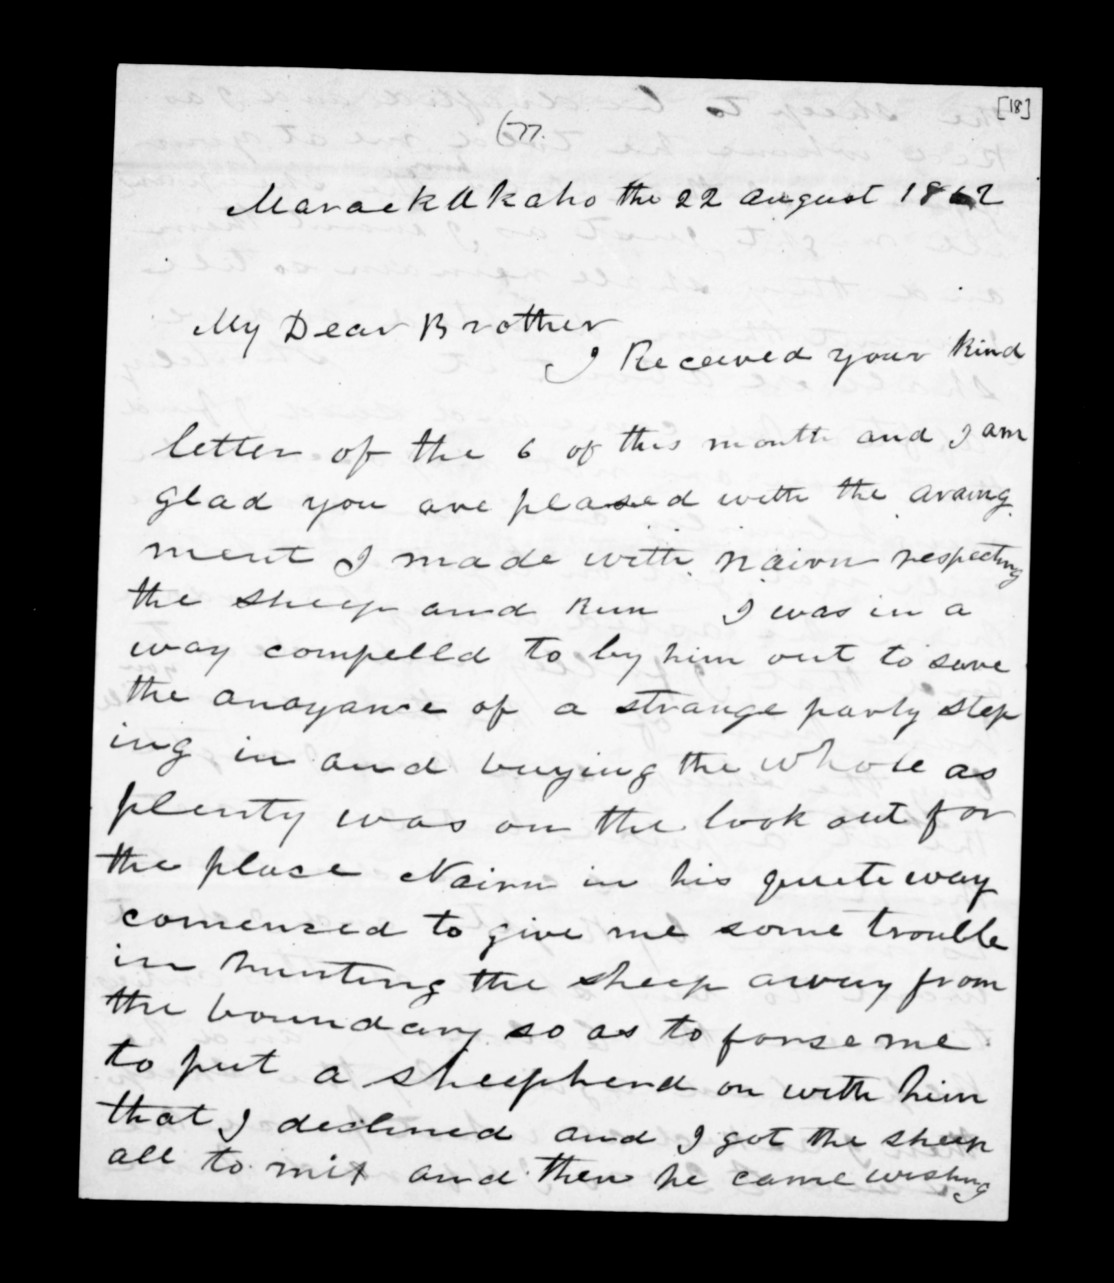 [18]
77.
MaraekAkaho the 22 august 1862
My Dear Brother
I Received your kind
letter of the 6 of this month and I am
glad you are pleased with the araing
ment I made with Nairn respecting
the sheep and Run I was in a
way compelld to by him out to save
the anoyance of a strange party step
ing in and buying the whole as
plenty was on the look out for
the place Nairn in his quiete way
comenced to give me some trouble
in hunting the sheep away from
the boundary so as to forse me
to put a sheepherd on with him
that I declined and I got the sheep
all to mix and then he came wishing